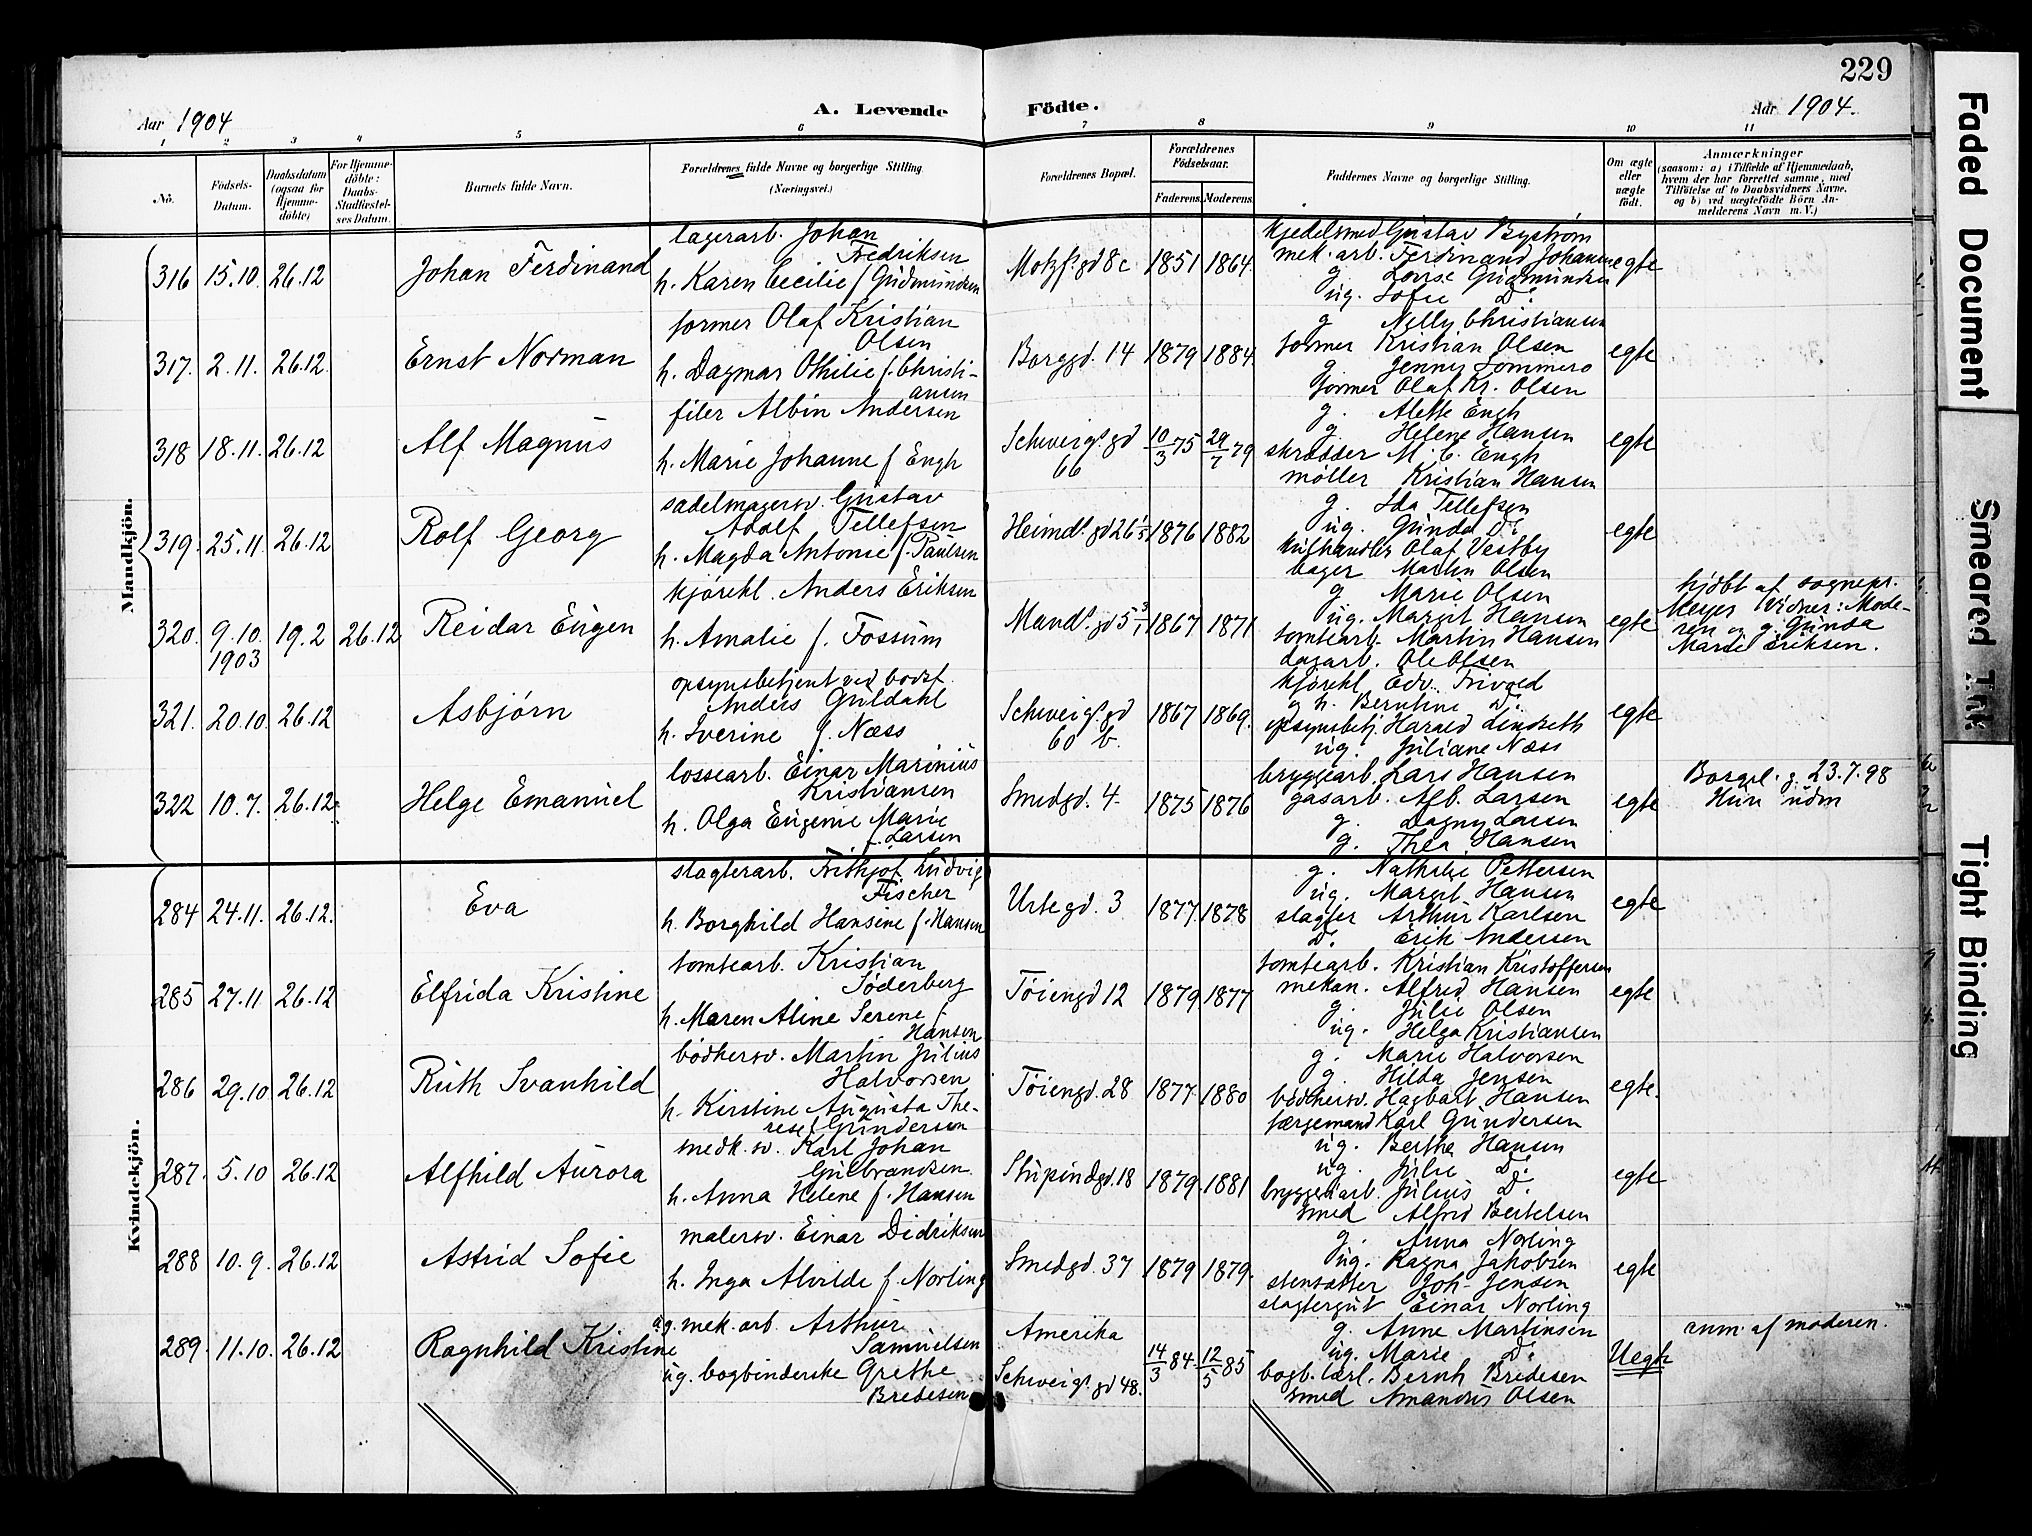 229
Aar 1904
A. Levende
Födte.
Aar 1904.
1 2 3 4 5 6 7 8 9 10 11
No.
Födsels-
Datum.
Daabsdatum
(ogsaa for
Hjemme-
döbte)
For Hjemme-
döbte:
Daabs-
Stadfæstel-
ses Datum.
Barnets fulde Navn.
Forældrenes fulde Navne og borgerlige Stilling
(Næringsvei.)
Forældrenes Bopæl.
Forældrenes
Födselsaar.
Faderens. Moderens.
Faddernes Navne og borgerlige Stilling.
Om ægte
eller
uægte
födt.
Anmærkninger
(saasom: a) i Tilfælde af Hjemmedaab,
hvem der har forrettet samme, med
Tilföielse af to Daabsvidners Navne,
og b) ved uægtefödte Börn An-
melderens Navn m. V.)
Mandkjön.
316 15.10. 26.12 Johan Ferdinand
lagerarb. Johan
Fredriksen
h. Karen Cecilie f. Gudmundsen
Motzf. gd 8c 1851 1864
kjedelsmed Gustav Byström
mek. arb. Ferdinand Johannes
g. Lovise Gudmundsen
ug. Sofie Do.
egte
317. 2.11. 26.12. Ernst Norman
former Olaf Kristian
Olsen
h. Dagmar Othilie f. Christi-
ansen
Borggd. 14 1879 1884.
g. Nelly Christiansen
former Kristian Olsen
g. Jenny Sommero
former Olaf Kr. Olsen
egte
318 18.11. 26.12 Alf Magnus
filer Albin Andersen
h. Marie Johanne f Engh
Schweigs. gd
66
10/3 75 29/7 79
g. Alette Engh
g. Helene Hansen
skrædder M. C. Engh
møller Kristian Hansen
egte
319. 25.11. 26.12 Rolf Georg
sadelmagersv. Gustav
Adolf Tellefsen
h. Magda Antonie f. Paulsen
Heimdl. gd 26 1/5 1876 1882
g. Ida Tellefsen
ug. Gunda Do.
Olaf Vestby
bager Martin Olsen
egte
320. 9.10.
1903
19.2 26.12 Reidar Eugen
kjørekl. Anders Eriksen
h. Amalie f. Fossum
Mandl. gd 5 3/1 1867 1871
g. Marie Olsen
ug. Margit Hansen
tomtearb. Martin Hansen
dagarb. Ole Olsen
egte
hjdbt af sognepr.
Meyer Vidner: Mode-
ren og g. Gunda
Marie Eriksen.
321. 20.10. 26.12 Asbjørn
opsynsbetjent ved bodsf.
Anders Guldahl
h. Iverine f. Næss
Schweigs. gd
60 b.
1867 1869.
kjørekl Edv. Trivold
g h. Berntine Do.
opsynsbetj. Harald Lindseth
ug. Juliane Næss
egte
322 10.7. 26.12. Helge Emanuel
lossearb. Einar Marinius
Kristiansen
h. Olga Eugenie Marie
f. Larsen
Smedgd. 4. 1875 1876
bryggearb. Lars Hansen
gasarb. Alb. Larsen
g. Dagny Larsen
g. Thea Hansen
egte
Borgel. g. 23.7.98
Hun udm
Kvindekjön.
284 24.11. 26.12. Eva
slagterarb. Frithjof Ludvig
Fischer
h. Borghild Hansine f. Hansen
Urtegd. 3 1877. 1878
g. Nathalie Pettersen
ug. Margit Hansen
slagter Arthur Karlsen
Do. Erik Andersen
egte
285 27.11 26.12 Elfrida Kristine
tomtearb. Kristian
Søderberg
h. Maren Aline Serene f.
Hansen
Tøiengd 12 1879 1877
tomtearb. Kristian Kristoffersen
mekan. Alfred Hansen
g. Julie Olsen
ug. Helga Kristiansen
egte
286 29.10. 26.12 Ruth Svanhild
bødkersv. Martin Julius
Halvorsen
h. Kirstine Augusta The-
rese f Gundersen
Tøiengd. 28 1877. 1880
g. Marie Halvorsen
g. Hilda Jensen
bødkersv. Hagbart Hansen
færgemand Karl Gundersen
egte.
287. 5.10 26.12 Alfhild Aurora
medk. sv. Karl Johan
Gulbrandsen
h. Anna Helene f. Hansen
Stupindgd. 18 1879. 1881
ug. Berthe Hansen
ug. Julie Do.
bryggeriarb. Julius Do.
smed Alfred Bertelsen
egte
288 10.9. 26.12 Astrid Sofie
malersv. Einar Didriksen
h. Inga Alvilde f. Norling
Smedgd. 37 1879 1879.
g. Anna Norling
ug. Ragna Jakobsen
stensætter Joh. Jensen
slagtergut Einar Norling
egte
289. 11.10. 26.12 Ragnhild Kristine
ug. mek. arb. Arthur
Samuelsen
ug. bogbinderske Grethe
Bredesen
Amerika
Schweigs. gd 48.
14/3 84. 12/5 85
g. Anne Martinsen
ug. Marie Do.
bogb. lærl. Bernh Bredesen
smed Amandus Olsen
Uegte
anm. af moderen.
Faded Document
Smeared Ink
Tight Binding